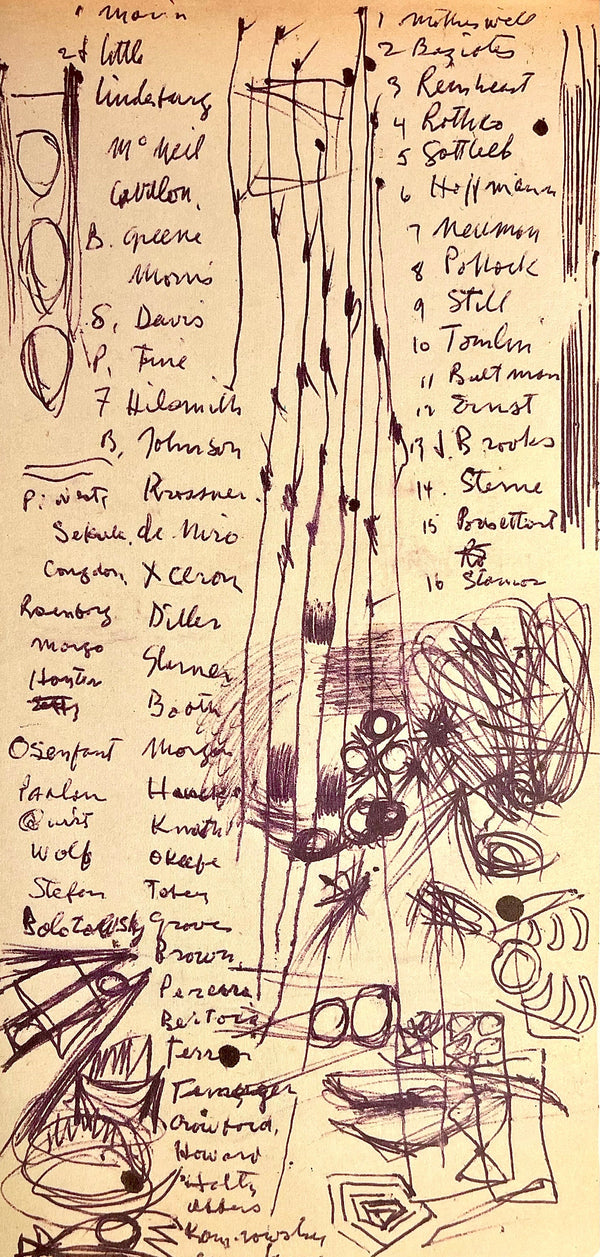 1 Marin
2 J little
Lindeburg
McNeil
Cavallon,
B. Greene
Morris
S. Davis
P. Fine
F Hilsmith
B. Johnson
Krassner.
Sekula, de Niro
Congdon, Xceron
Rosenborg Diller
Margo Sterner
Hunter
Booth
Osenfant Morgan
Knath
Wolf Okeefe
Stefan Tobey
Bolotowsky Graves
Brown,
Pereira
Bertoia
Crawford,
Howard
Holty
Albers
Kamrowsky
1 Motherwell
2 Baziotes
3 Reinheart
4 Rothko
5 Gottlieb
6 Hoffmann
7 Newman
8 Pollock
9 Still
10 Tomlin
11 Bultman
12 Ernst
13 J. Brooks
14. Sterne
15 Pousettdart
16 Stamos